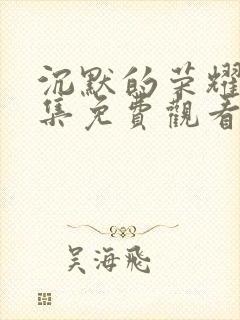 沉默的荣耀
集免費觀看
吴海飛